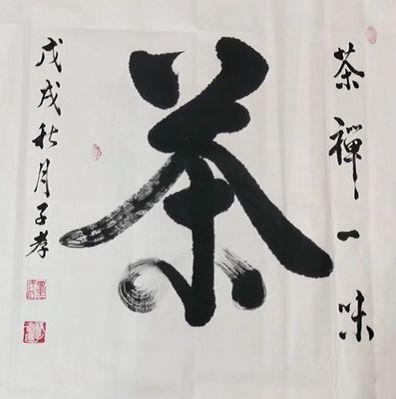 茶禪一味
茶
戊戌秋月子孝